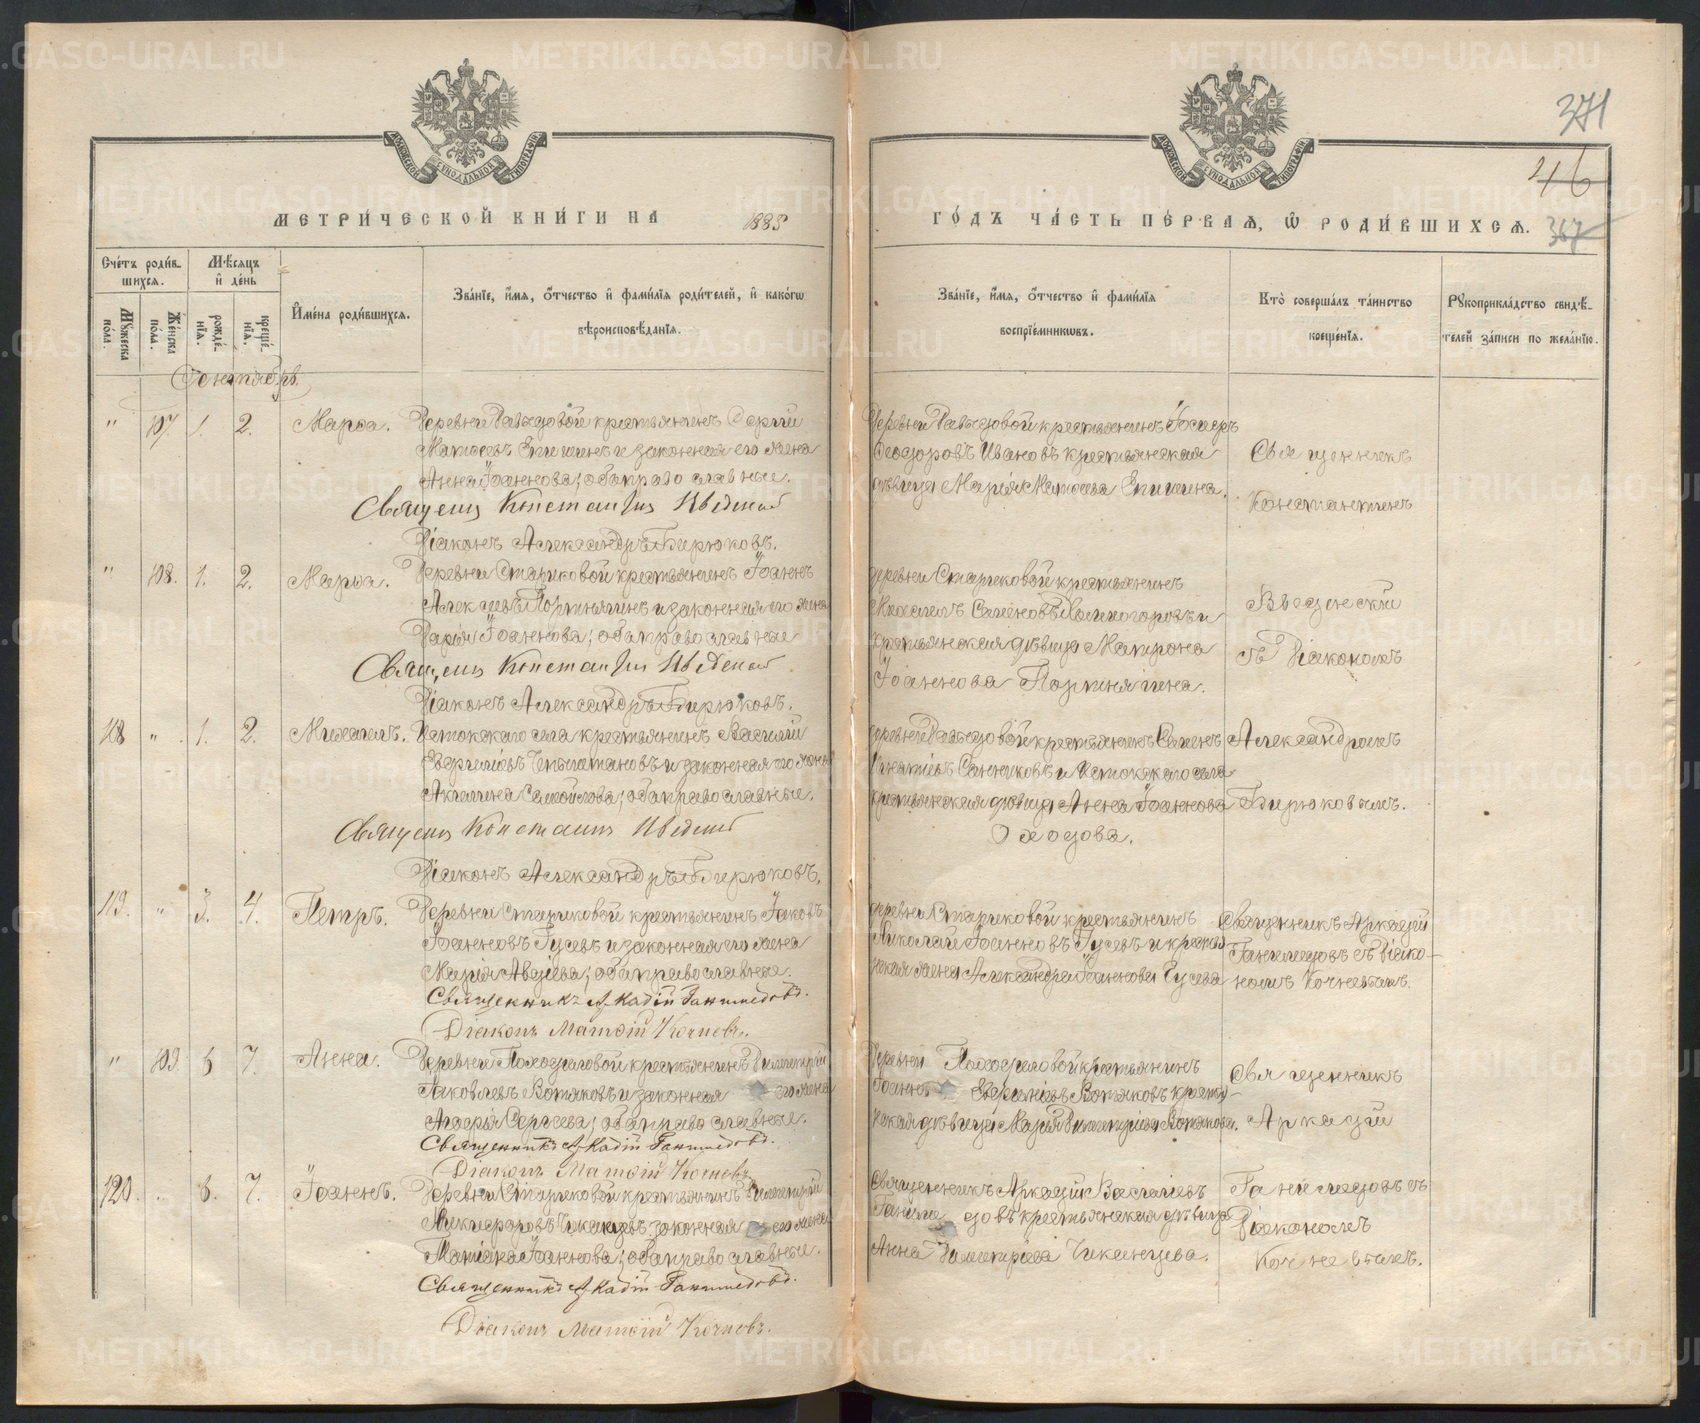 371
46
367
МЕТРИ́ЧЕСКОЙ КНИ́ГИ НА 1883
ГО́ДЪ ЧА́СТЬ ПЕ́РВАЯ, Ѽ РОДИ́ВШИХСЯ.
Сче́тъ роди́в-
шихся.
Мѣ́сяцъ
и҆ де́нь
Мꙋ́жеска
по́ла.
Же́нска
по́ла.
рожде́-
нїя.
креще́-
нїя.
И҆мена̀ роди́вшихся.
Зва́нїе, и҆́мя, ѻ҆́тчество и҆ фами́лїя роди́телей, и҆ како́гѡ
вѣроисповѣ́данїя.
Зва́нїе, и҆́мя, ѻ҆́тчество и҆ фами́лїя
воспрїе́мникѡвъ.
Кто̀ соверша́лъ та́инство
креще́нїя.
Рꙋкоприкла́дство свидѣ́-
телей за́писи по жела́нїю.
Сентябрь
" 107. 1. 2. Марѳа. Деревни Давыдовой крестьянинъ Сергій
Матѳеевъ Епишинъ и законная его жена
Анна Іоаннова; оба православные.
Священ Константин
Діаконъ Александръ Бирюковъ.
Деревни Давыдовой крестьянинъ
Ѳеодоровъ Ивановъ крестьянская
дѣвица Марія Матѳеева Епишина.
Священникъ
Константинъ
" 108. 1. 2. Марѳа. Деревни Стариковой крестьянинъ Іоаннъ
Алексѣевъ Портнягинъ и законная его жена
Дарія Іоаннова; оба православные
Священ Константин
Діаконъ Александръ Бирюковъ.
деревни Стариковой крестьянинъ
Михаилъ Семеновъ и
крестьянская дѣвица Матрона
Іоаннова Портнягина.
съ Діакономъ
118 " 1. 2. Михаилъ. Истокскаго села крестьянинъ Василій
и законная его жена
Акилина Самойлова; оба православные.
Священ Константин
Діаконъ Александръ Бирюковъ.
деревни Давыдовой крестьянинъ Семенъ
Игнатіевъ Санниковъ и Истокскаго села
крестьянская дѣвица Анна Іоаннова
Александромъ
Бирюковымъ.
119. " 3. 4. Петръ. Деревни Стариковой крестьянинъ Іаковъ
Іоанновъ Гусевъ и законная его жена
Марія Авдіева; оба православные.
Священникъ Аркадій Ганимедовъ.
Діаконъ Матѳій Кочневъ.
деревни Стариковой крестьянинъ
Николай Іоанновъ Гусевъ и крестьян
ская жена Александра Іоаннова Гусева
Священникъ Аркадій
Ганимедовъ съ Діако-
номъ Кочневымъ.
" 109. 6 7. Анна. Деревни крестьянинъ Димитрій
Іаковлевъ Вотяковъ и законная его жена
Агафія Сергѣева; оба православные.
Священникъ Аркадій Ганимедовъ.
Діаконъ Матѳій Кочневъ
Деревни крестьянинъ
Іоаннъ Вотяковъ крестьян-
ская дѣвица Марія Димитріева Вотякова.
Священникъ
Аркадій
120. " 6. 7. Іоаннъ. Деревни Стариковой крестьянинъ Димитрій
Никифоровъ Чиканцевъ законная его жена
Іоаннова; оба православные.
Священникъ Аркадій Ганимедовъ.
Діаконъ Матѳій Кочневъ.
Священникъ Аркадій Васильевъ
Ганимедовъ крестьянская дѣвица
Анна Димитріева Чиканцева.
Ганимедовъ съ
Діакономъ
Кочневымъ.